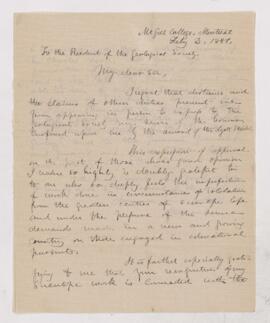 McGill College, Montreal
Feby 3, 1881.
To the President of the Geological Society
My dear Sir,
I regret that distance and
the claims of other duties prevent me
from appearing in person to express to the
Geological Society my sense of the honour
conferred upon me by the award of the Lyell Medal
This expression of approval
on the part of those whose good opinion
I value so highly, is doubly grateful
to an who so deeply feels the imperfection
of work done in circumstances of isolation
from the greater centres of scientific life
and under the pressure of the
demands made in a new and growing
country on those engaged in educational
pursuits.
It is farther especially grati-
fying to me that your recognition of my
scientific work is connected with the